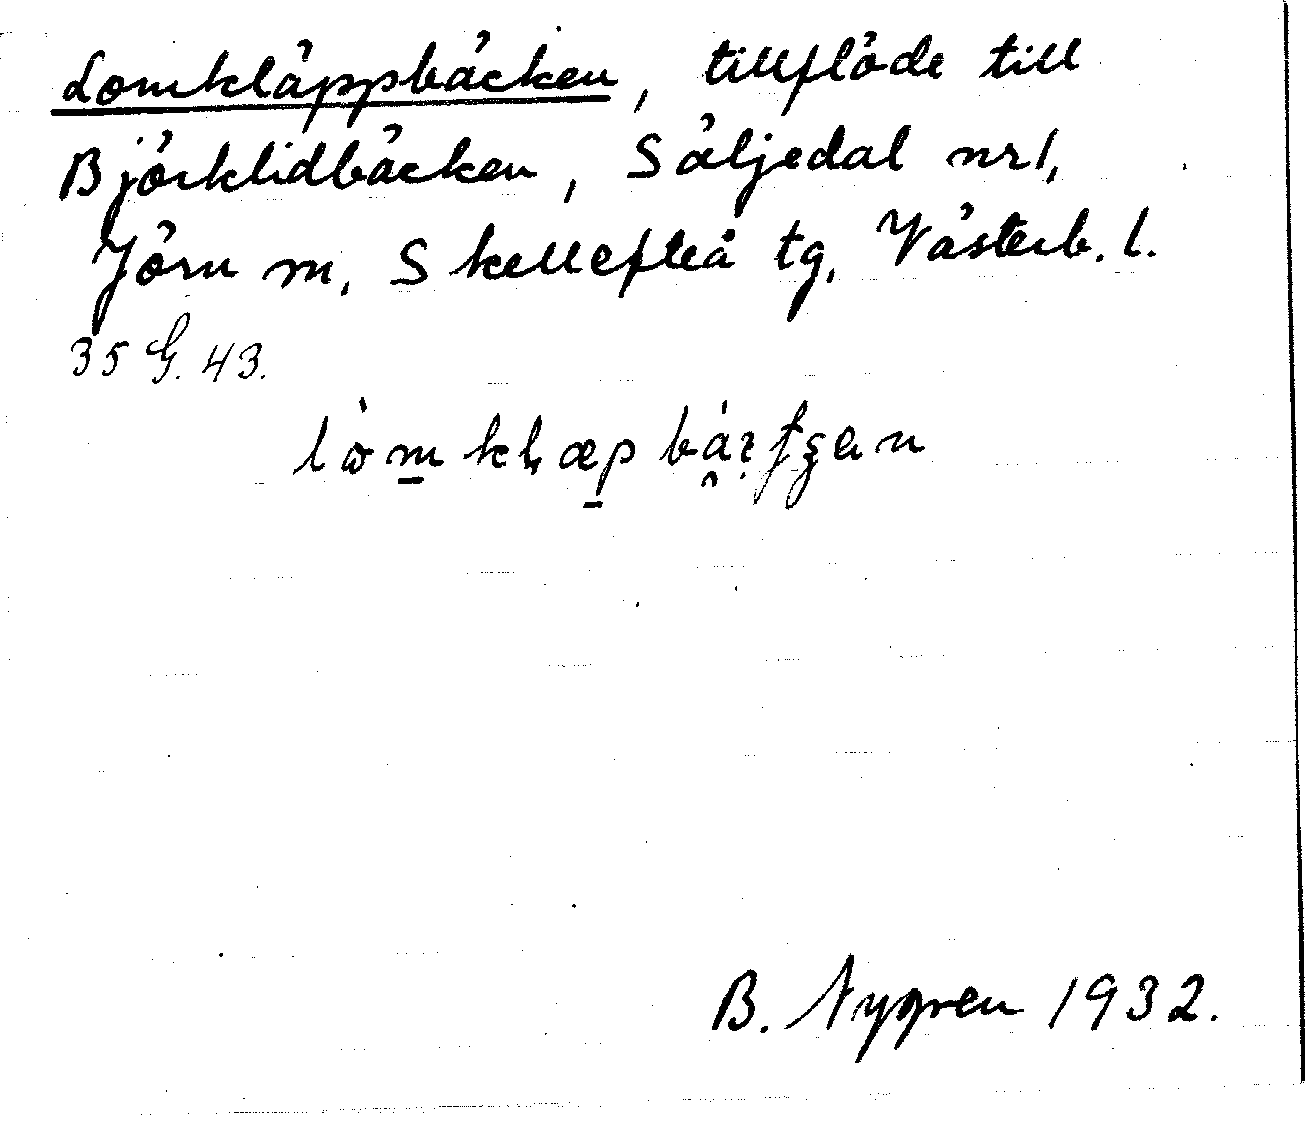 Lomkläppbäcken, tillflöde till
Björklidbäcken, Säljedal nr 1,
Jörn sn, Skellefteå tg, Västerb. l.
35 G. 43.
B. Nygren 1932.